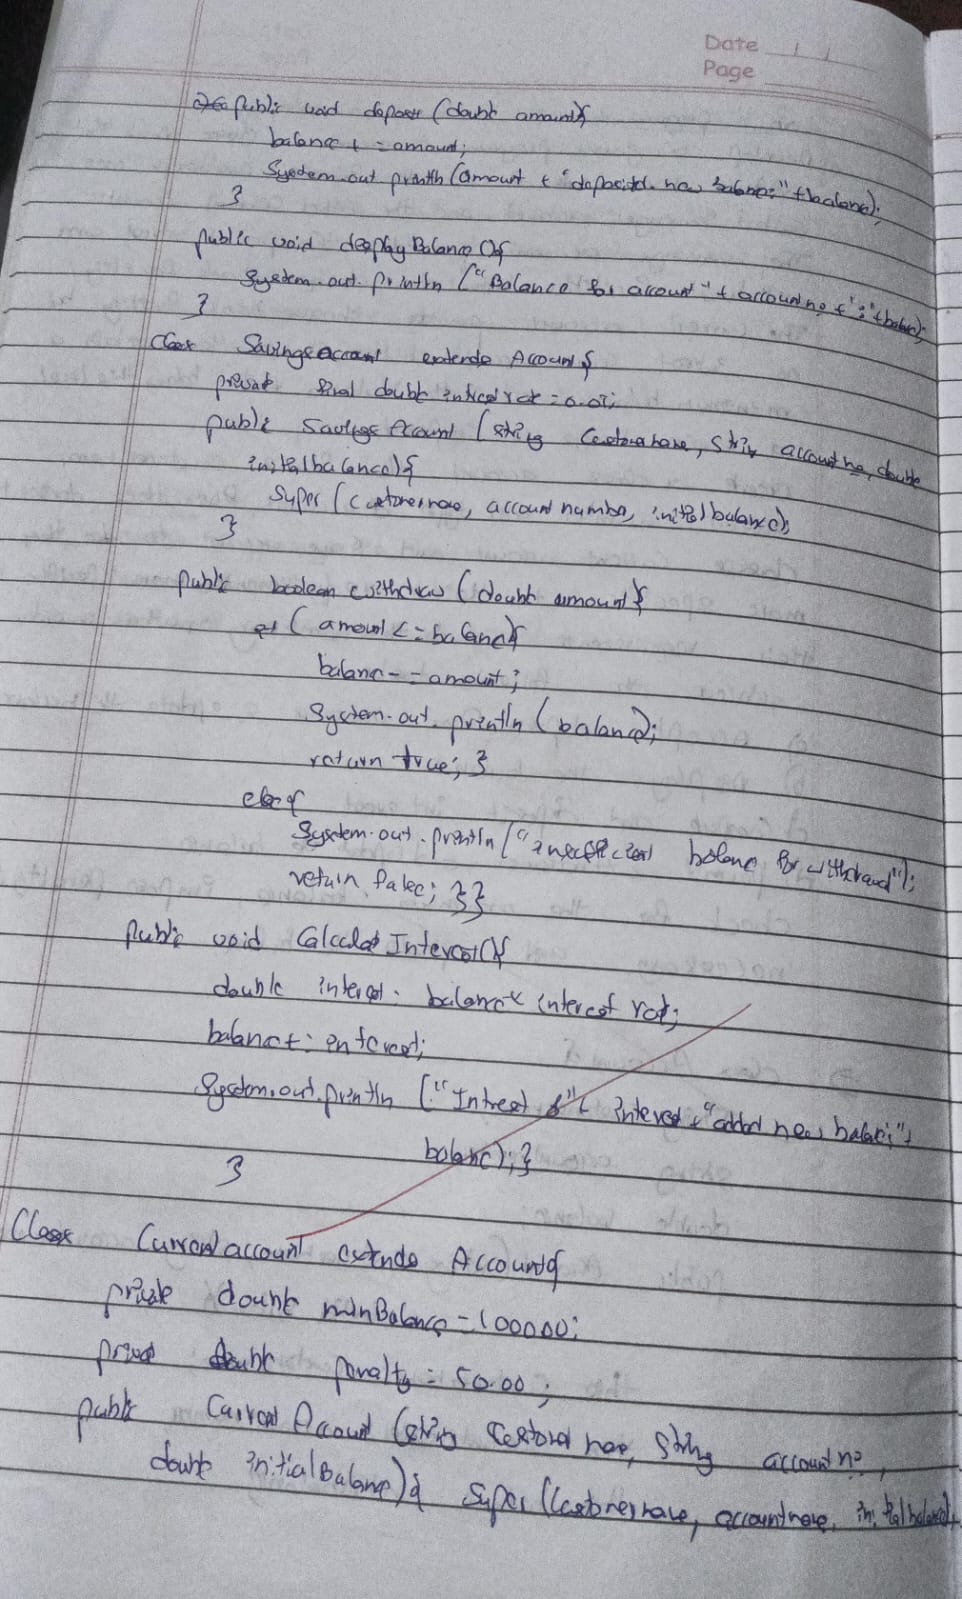 Date
Page
public void deposit (double amount){
balance + = amount;
System.out.println (amount + "deposited. new balance:" + balance);
}
public void desplayBalance (){
System.out.println ("Balance for account" + account no + ":" + balance);
}
Class Savingsaccount extends Account{
private final double interest rate = 0.05;
public Savings Account (string Customername, String account no, double
initialbalance){
Super (customername, account number, initialbalance);
}
public boolean withdraw (double amount){
if (amount <= balance){
balance - = amount;
System.out.println (balance);
return true; }
else{
System.out.println ("insufficient balance for withdrawal");
return false; }}
public void Calculate Interest(){
double interest = balance * interest rate;
balance + = interest;
System.out.println ("Interest of" + interest + "added new balance:" +
balance); }
}
Class Current account extends Account{
private double minBalance = 1000.00;
private double penalty = 50.00;
public Current Account (string Customer name, String account no,
double initialBalance){ Super (Customername, accountname, initialbalance);